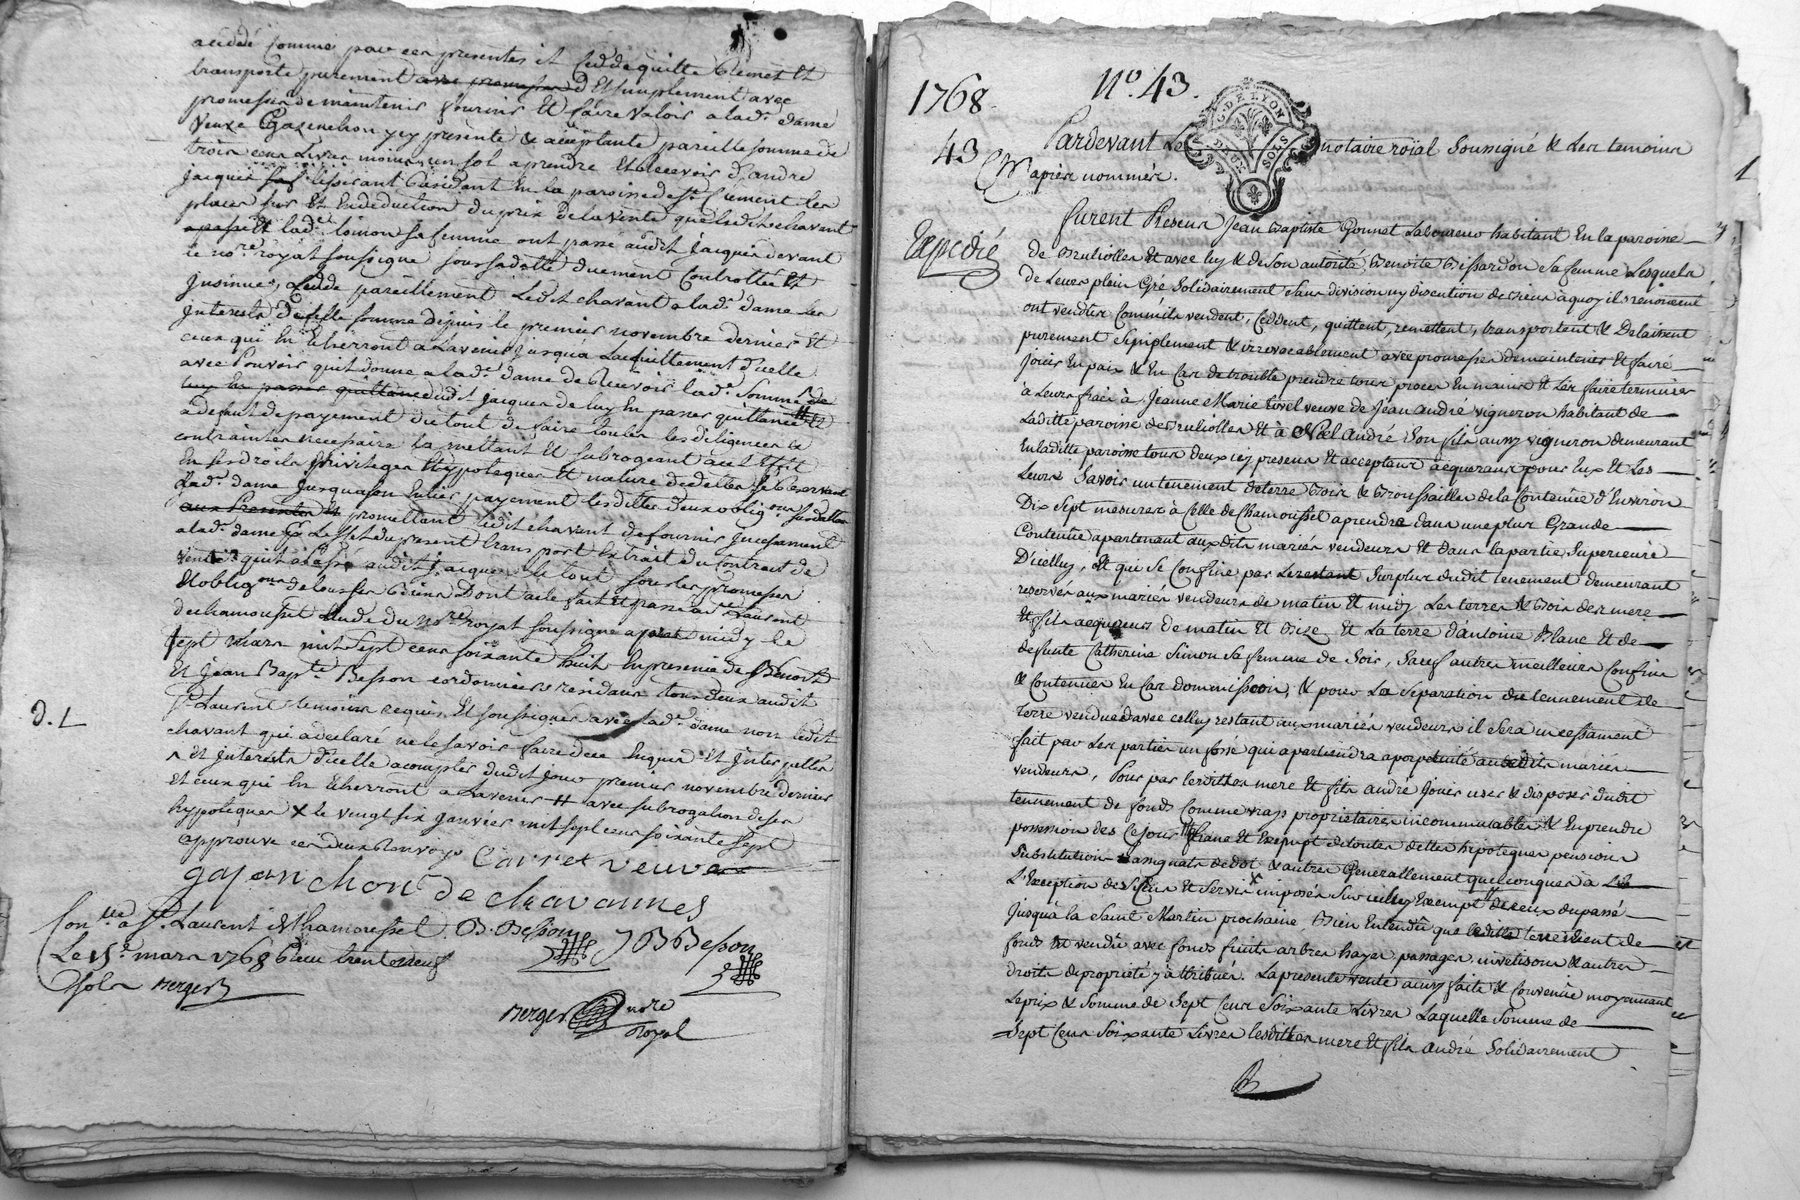 a cedé comme par ces presentes il cedde quitte remet et
transporte purement et simplement avec
promesses de maintenir fournir et faire valoir a lad.e dame
veuve Gajanchon y cy presente & acceptante pareille somme de
trois cens Livres moins un sol a prendre et recevoir d'andre
jacques residant en la paroisse de st. Clement les
places sur et en deduction du prix de la vente que ledit chavant
et lad.e simon sa femme ont passé audit jacques devant
le no.re royal soussigne sous sa datte duement Controllée et
jnsinuée, Cedde pareillement Ledit chavant a lad.e dame les
jnterets d'jcelle somme depuis le premier novembre dernier et
ceux qui en Cherront a L'avenir jusqu'a Lacquittement d'jcelle
avec Pouvoir quil donne a lad.e dame de Recevoir lad.e somme de
luy en passer quittance dudit jacques de luy En passer quittance et
a defaut de payement du tout de faire toutes les diligences &
contraintes necessaires la mettant et subrogeant a cet effet
En ses droits privileges hypoteques et nature de dettes se reservant
Lad.e dame jusqua son Entier payement lesdittes deux oblig.ons susdattes
aux Presentes et promettant ledit chavant de fournir jncessament
a lad.e dame Leffet du present transport Extrait du Contrat de
vente quil a passé audit jacques le tout sous les promesses
et oblig.ons de tous ses biens Dont acte fait et passé a st. Laurent
de chamousset Etude du no.re royal soussigne apres midy le
sept mars mil sept cens soixante huit En presence de Benoit
et jean Bap.te Besson cordonniers residans tous deux audit
st. Laurent temoins requis et soussignes avec lad.e dame non ledit
chavant qui a declaré ne le savoir faire de ce Enquis et jnterpellés
et jnterets d'jcelle a compter dudit jour premier novembre dernier
et ceux qui En Cherront a Lavenir # avec subrogation de ses
hypoteques X le vingt six janvier mil sept cens soixante sept
approuve ces deux Renvoys Carret veuve
gajanchon de chavannes
D. L
B. Besson J B Besson
Con.lle a St. Laurent de Chamousset
Le 15.e mars 1768 Reçu trente neuf
Sols Berger
Berger no.re
Royal
1768 No. 43.
43
G. DE LYON
DEUX SOLS
Pardevant Le notaire roïal soussigné & Les temoins
apièr nommér.
Expedié
Furent Presens Jean Baptiste Gonnet Laboureur habitant En la paroisse
de Brulioller Et avec luy & de son autorité, Benoite Bissardon sa femme Lesquels
de Leurs plein Gré solidairement sans division ny discution de biens à quoy ils renoncent
ont vendu comme ils vendent, Ceddent, quittent, remettent, transportent & Delaissent
purement simplement & irrevocablement avec promesses de maintenir Et faire
Jouir En paix & En Cas de trouble prendre tous procès En mains Et Les faire terminer
à Leurs frais à Jeanne Marie Tivel veuve de Jean André vigneron habitant de
Laditte paroisse de Brulioller Et à Noël André son fils aussy vigneron demeurant
En laditte paroisse tous deux icy presens Et acceptans acquereurs pour Eux et Les
Leurs Savoir un tenement de terre Bois & Broussailles de la Contenüe d'Environ
Dix sept mesures à Celle de Chamousset a prendre dans une plus Grande
Contenüe apartenant auxdits mariés vendeurs Et dans la partie superieure
D'icelluy, Et qui se Confine par Le restant surplus dudit tenement demeurant
reservés aux mariés vendeurs de matin Et midy Les terres & Bois des mere
Et fils acquereurs de matin Et Bize Et La terre d'antoine Blanc Et de
defunte Catherine Simon sa femme de soir, sauf autres meilleurs Confins
& Contenües En Cas d'ommission, & pour La separation du tennement de
terre vendue d'avec celluy restant aux mariés vendeurs il sera incessament
fait par Les parties un fossé qui apartiendra à perpetuité auxdits mariés
vendeurs, Pour par lesdittes mere Et fils andré Jouir user & disposer dudit
tennement de fonds Comme vrays propriétaires incommutables & En prendre
possession des Ce jour franc et Exempt de toutes dettes hipoteques pensions
substitution & autres Generallement quelconques à
L'Exception des Cens Et servis imposés sur icelluy Exempt d'iceux du passé
Jusqu'à la saint Martin prochaine, Bien Entendû que
fonds Est vendû avec fonds fruits arbres hayes passages, investisons & autres
droits de propriété y attribuée. La presente vente aussy faite & Convenüe moyennant
Le prix & somme de sept Cens soixante Livres Laquelle somme de
sept Cens soixante Livres lesdittes mere Et fils André solidairement